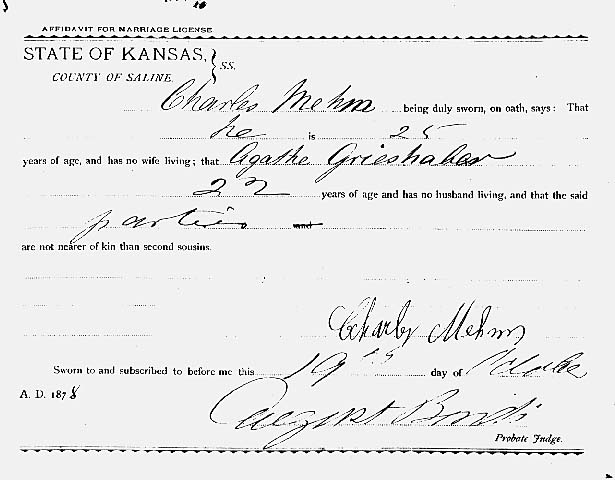 AFFIDAVIT FOR MARRIAGE LICENSE
STATE OF KANSAS, } SS.
COUNTY OF SALINE.
Charles Mehm being duly sworn, on oath, says: That
he is 25
years of age, and has no wife living; that Agathe Grieshaber
22 years of age and has no husband living, and that the said
parties and
are not nearer of kin than second sousins.
Charles Mehm
Sworn to and subscribed to before me this 19th day of
A. D. 1878
August Bondi
Probate Judge.